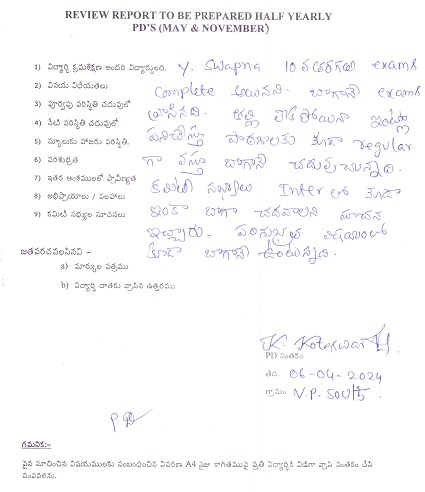 REVIEW REPORT TO BE PREPARED HALF YEARLY
PD'S (MAY & NOVEMBER)
1) విద్యార్ధి క్రమశిక్షణ అందరి విద్యార్ధులంది. Y. Swapna 10 వ తరగతి exams
2) వినయ విధేయతలు complete అయినవి. బాగానే exams
3) పూర్వపు పరిస్థితి చదువులో వ్రాసినది. తల్లి లేక పోయినా ఇంట్లో
4) నేటి పరిస్థితి చదువులో పనిచేస్తూ పాఠశాలకు కూడా regular
5) స్కూలుకు హాజరు పరిస్థితి. గా వస్తూ బాగానే చదువుచున్నది.
6) పరిశుభ్రత
7) ఇతర అంశములలో ప్రావీణ్యత కమిటీ సభ్యులు Inter లో కూడా
8) అభిప్రాయాలు / సలహాలు ఇంకా బాగా చదవాలని సూచన
9) కమిటీ సభ్యుల సూచనలు ఇచ్చారు. పరిశుభ్రత విషయంలో
కూడా బాగానే ఉంటున్నది.
జతపరచవలసినవి :-
a) మార్కుల పత్రము
b) విద్యార్ధి దాతకు వ్రాసిన ఉత్తరము
K. Koteswar
PD సంతకం
తేది. 06-04-2024
గ్రామం N.P. South
PD
గమనిక:-
పైన సూచించిన విషయములకు సంబంధించిన వివరణ A4 సైజు కాగితముపై ప్రతి విద్యార్ధికి విడిగా వ్రాసి సంతకం చేసి
పంపవలెను.